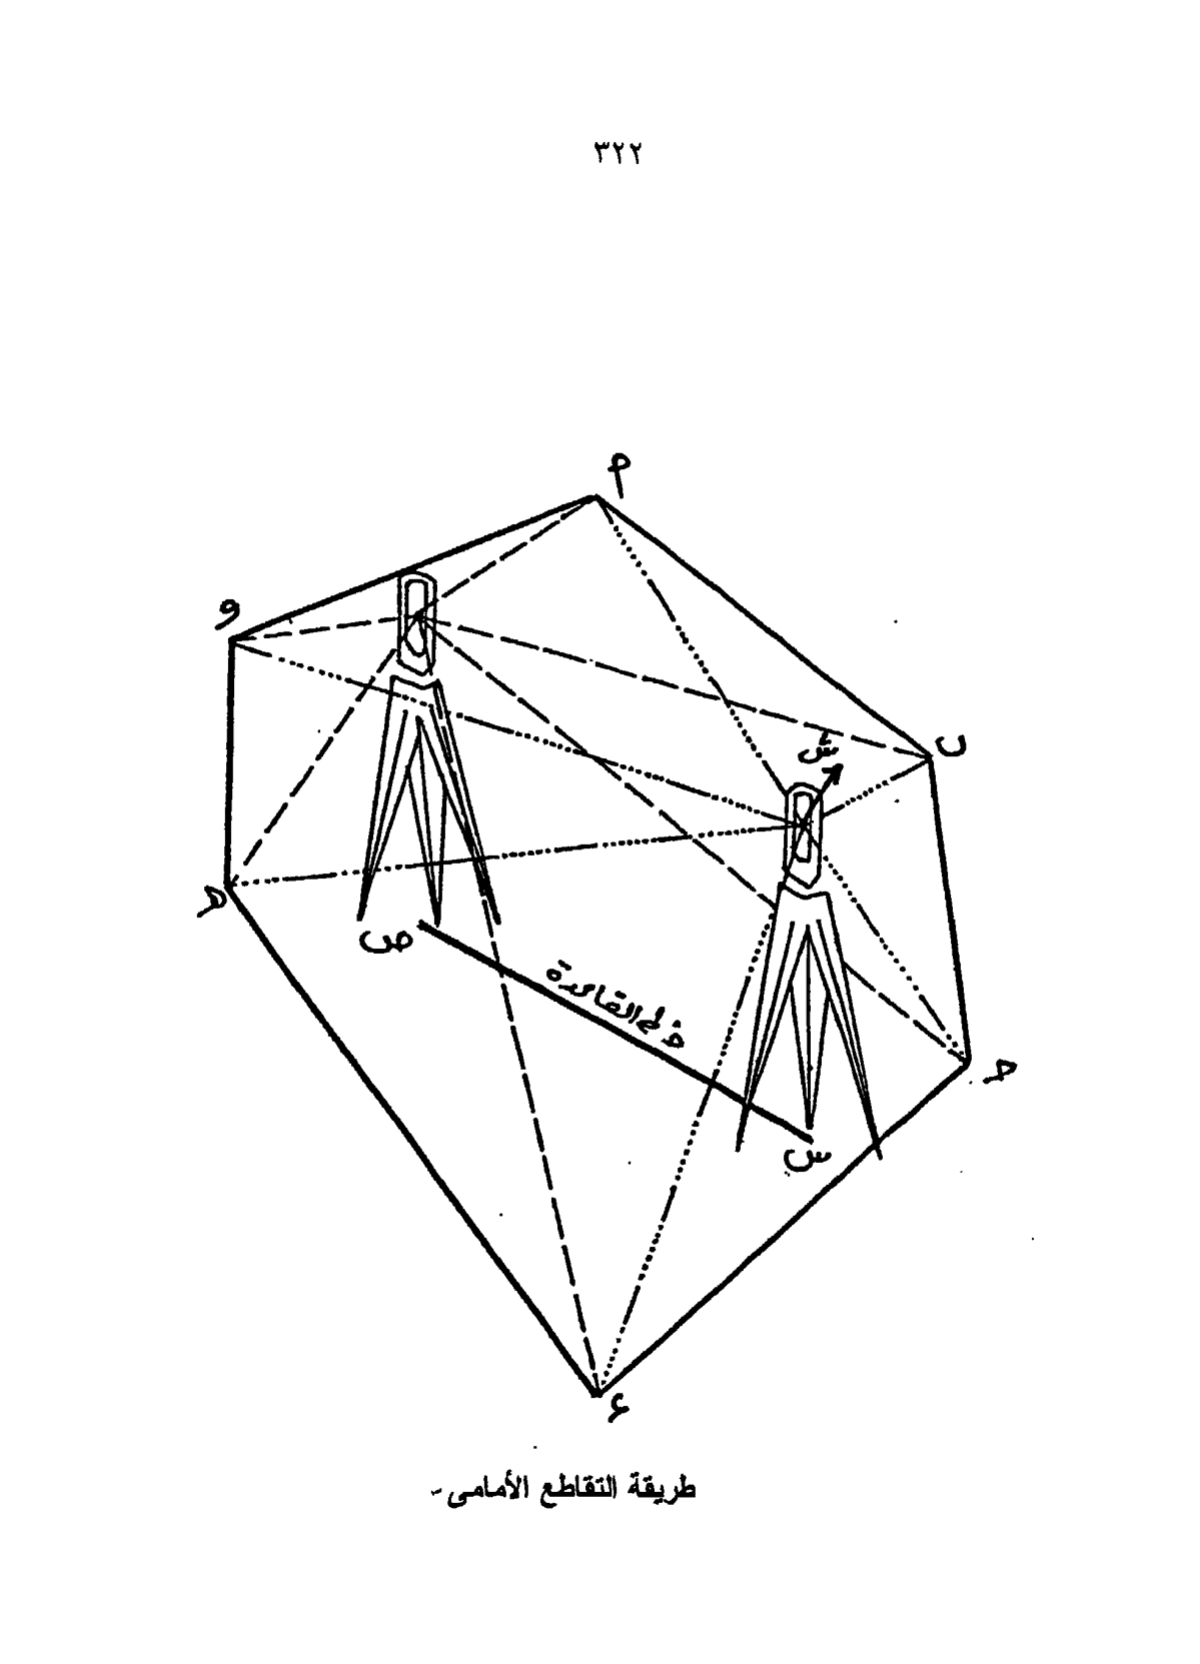 ٣٢٢
م
و
ب
ش
هـ
ص
خط القاعدة
حـ
س
ء
طريقة التقاطع الأمامى -